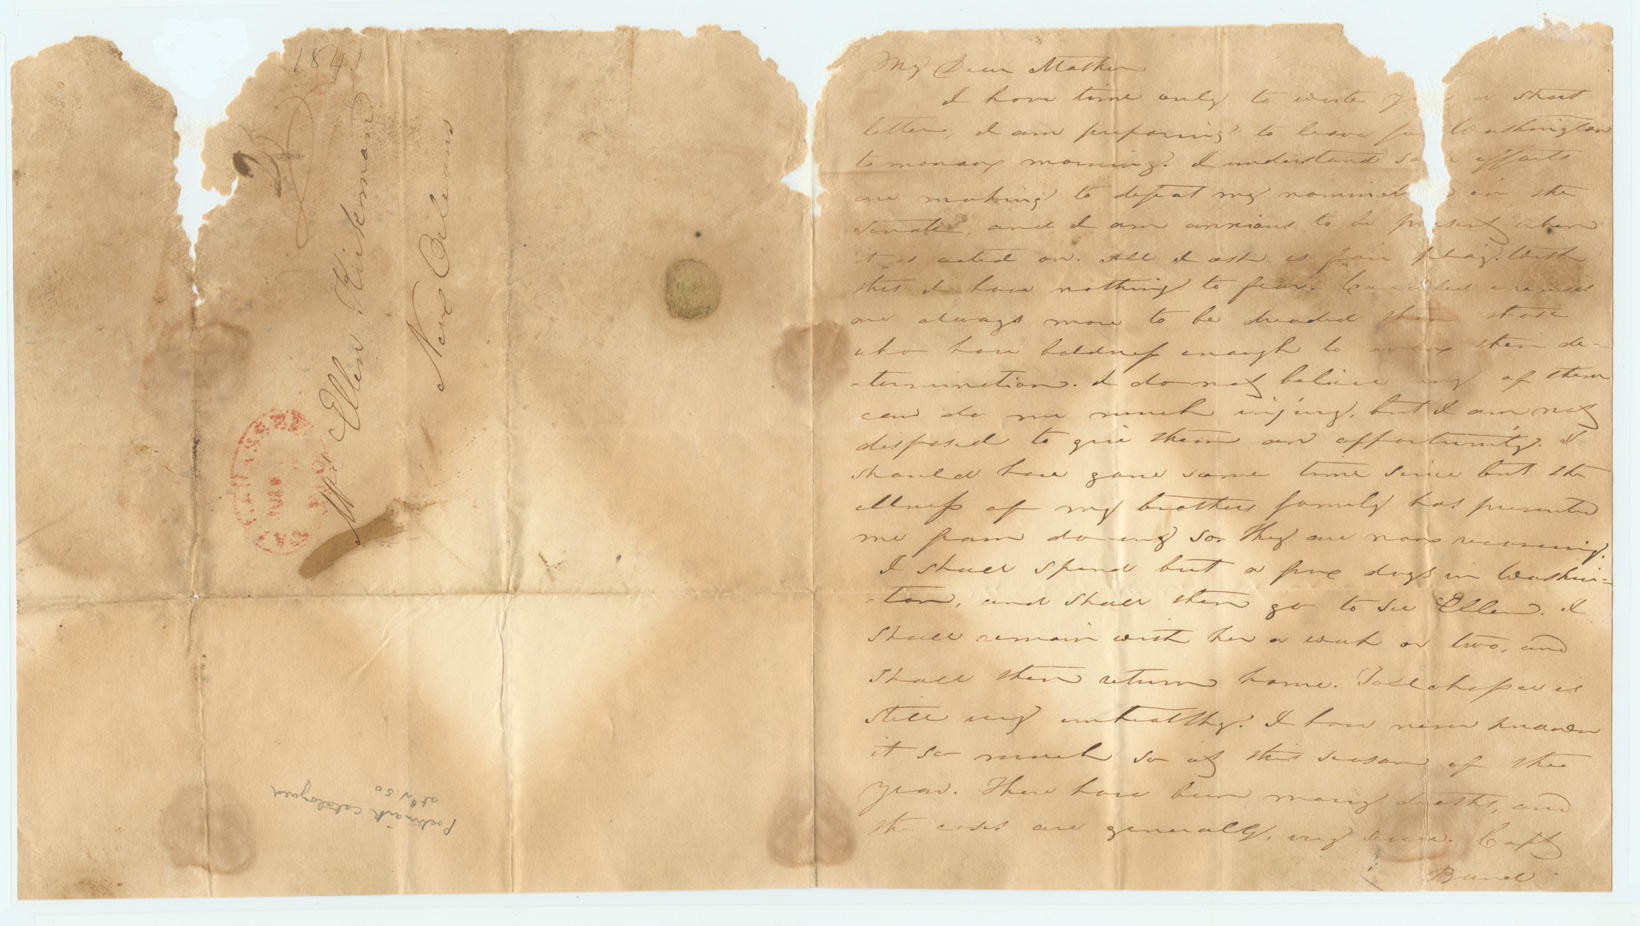 1841
Mrs Ellen Kirkman
New Orleans
TALLAHASSEE
Postmark catalogued
at 7.50
My Dear Mother
I have time only to write you a short
letter, I am preparing to leave for Washington
to morrow morning. I understand some efforts
are making to defeat my nomination in the
Senate, and I am anxious to be present when
it is acted on. All I ask is fair play. With
this I have nothing to fear. Concealed enemies
are always more to be dreaded than those
who have boldness enough to avow their de-
-termination. I do not believe any of them
can do me much injury, but I am not
disposed to give them an opportunity. I
should have gone some time since but the
illness of my brothers family has prevented
me from doing so. They are now recovering.
I shall spend but a few days in Washin-
-ton, and shall then go to see Ellen. I
shall remain with her a week or two, and
shall then return home. Tallahassee is
still very unhealthy. I have never known
it so much so at this season of the
year. There have been many deaths, and
the cases are generally, very severe. Capt